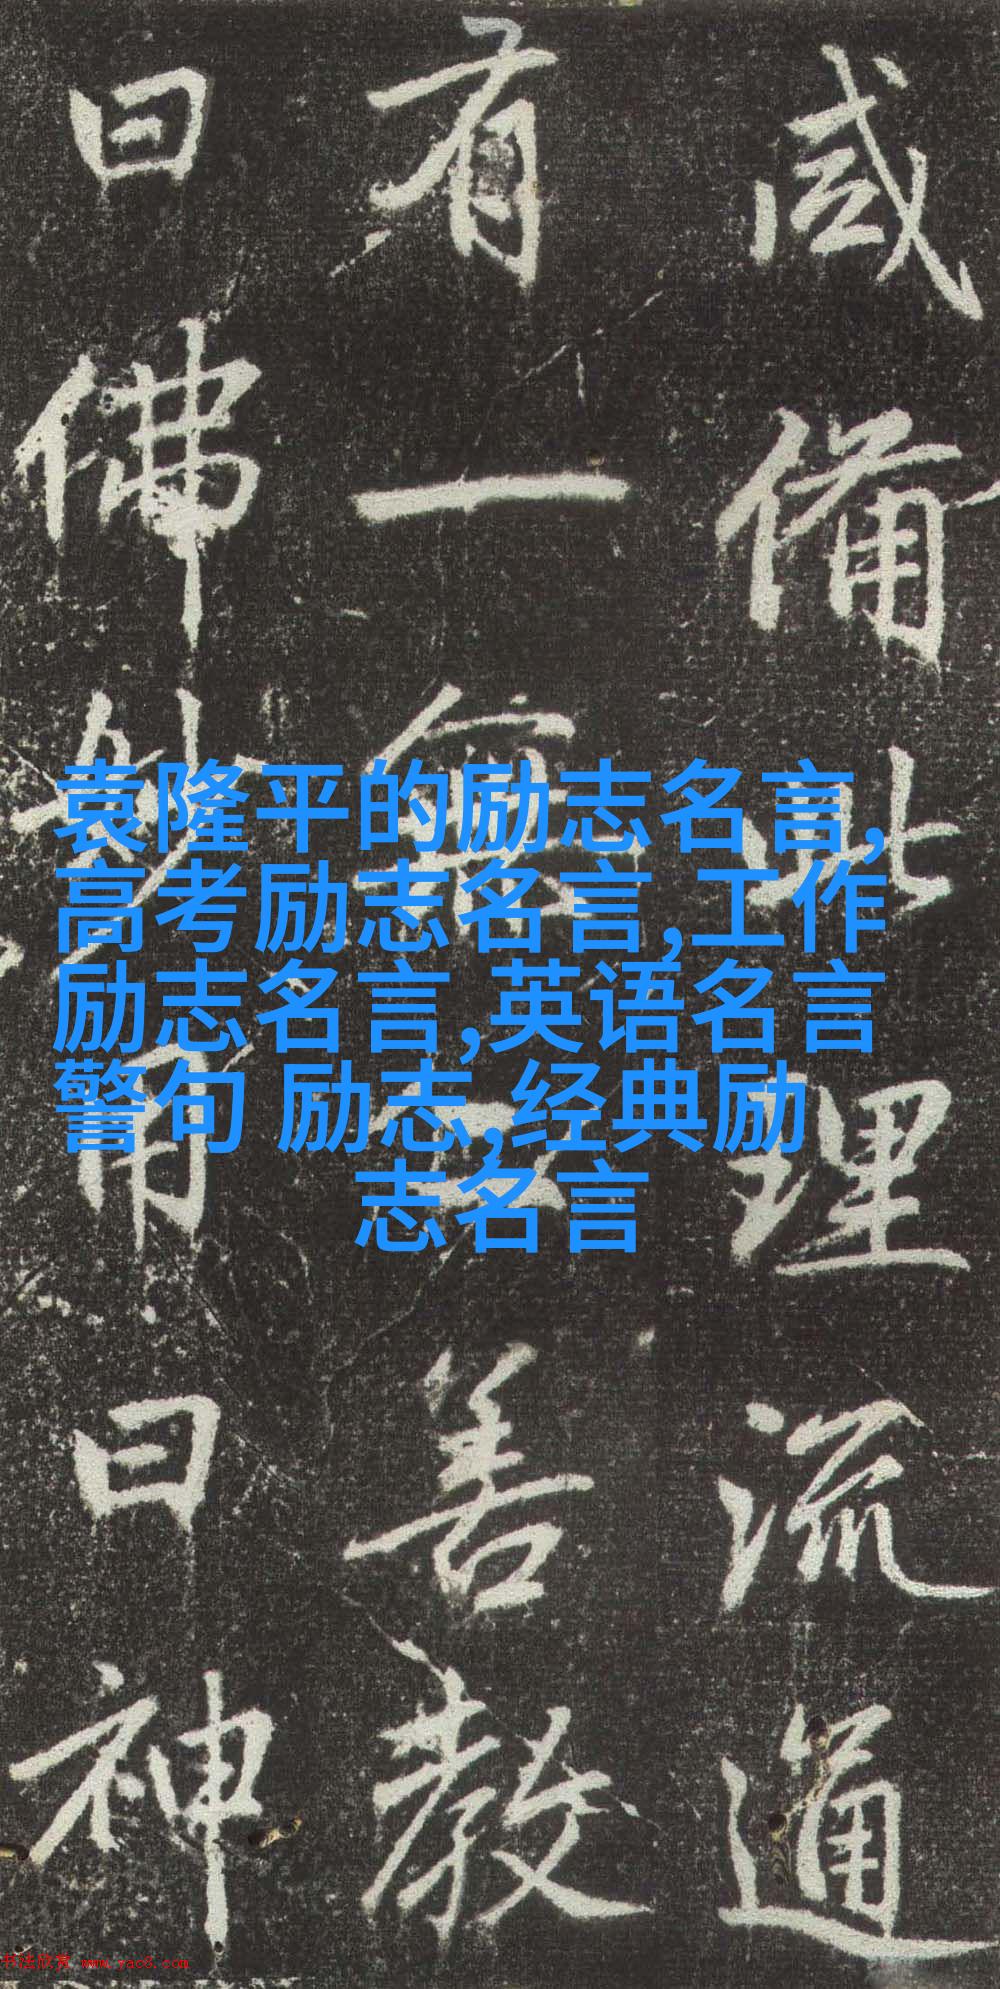 咸備此理流通
有一善教
曰佛用曰神
袁隆平的励志名言,
高考励志名言,工作
励志名言,英语名言
警句 励志,经典励
志名言
书法欣赏 www.yac8.com